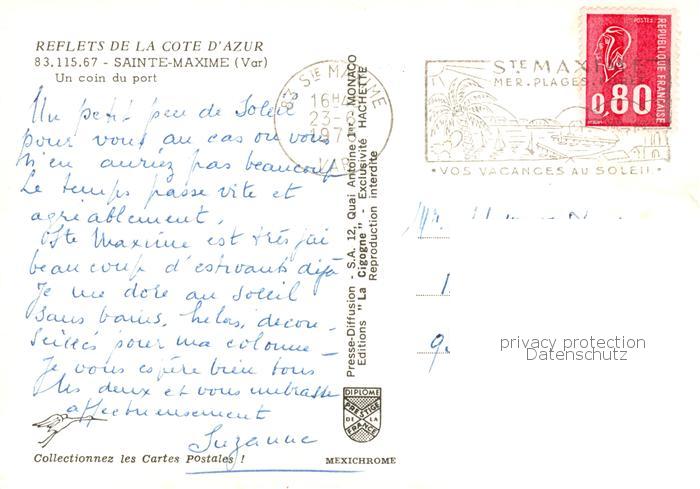 REFLETS DE LA COTE D'AZUR
83.115.67 - SAINTE-MAXIME (Var)
Un coin du port
Un petit peu de Soleil
pour vous au cas ou vous
n'en auriez pas beaucoup
Le temps passe vite et
agréablement.
Ste Maxime est très gai
beaucoup d'estivants déjà
Je me dore au soleil
sans bains, helas, décon-
seillés pour ma colonne_
Je vous espère bien tous
les deux et vous embrasse
affectueusement
Suzanne
Collectionnez les Cartes Postales !
MEXICHROME
Presse-Diffusion - S.A. 12, Quai Antoine 1er MONACO
Editions "La Cigogne" - Exclusivité HACHETTE
Reproduction interdite
DIPLÔME
PRESTIGE
DE LA
FRANCE
83 STE MAXIME
16H
23-
VAR
STE MAXIME
MER. PLAGES
• VOS VACANCES AU SOLEIL •
POSTES
REPUBLIQUE FRANÇAISE
0,80
Mr.
privacy protection
Datenschutz